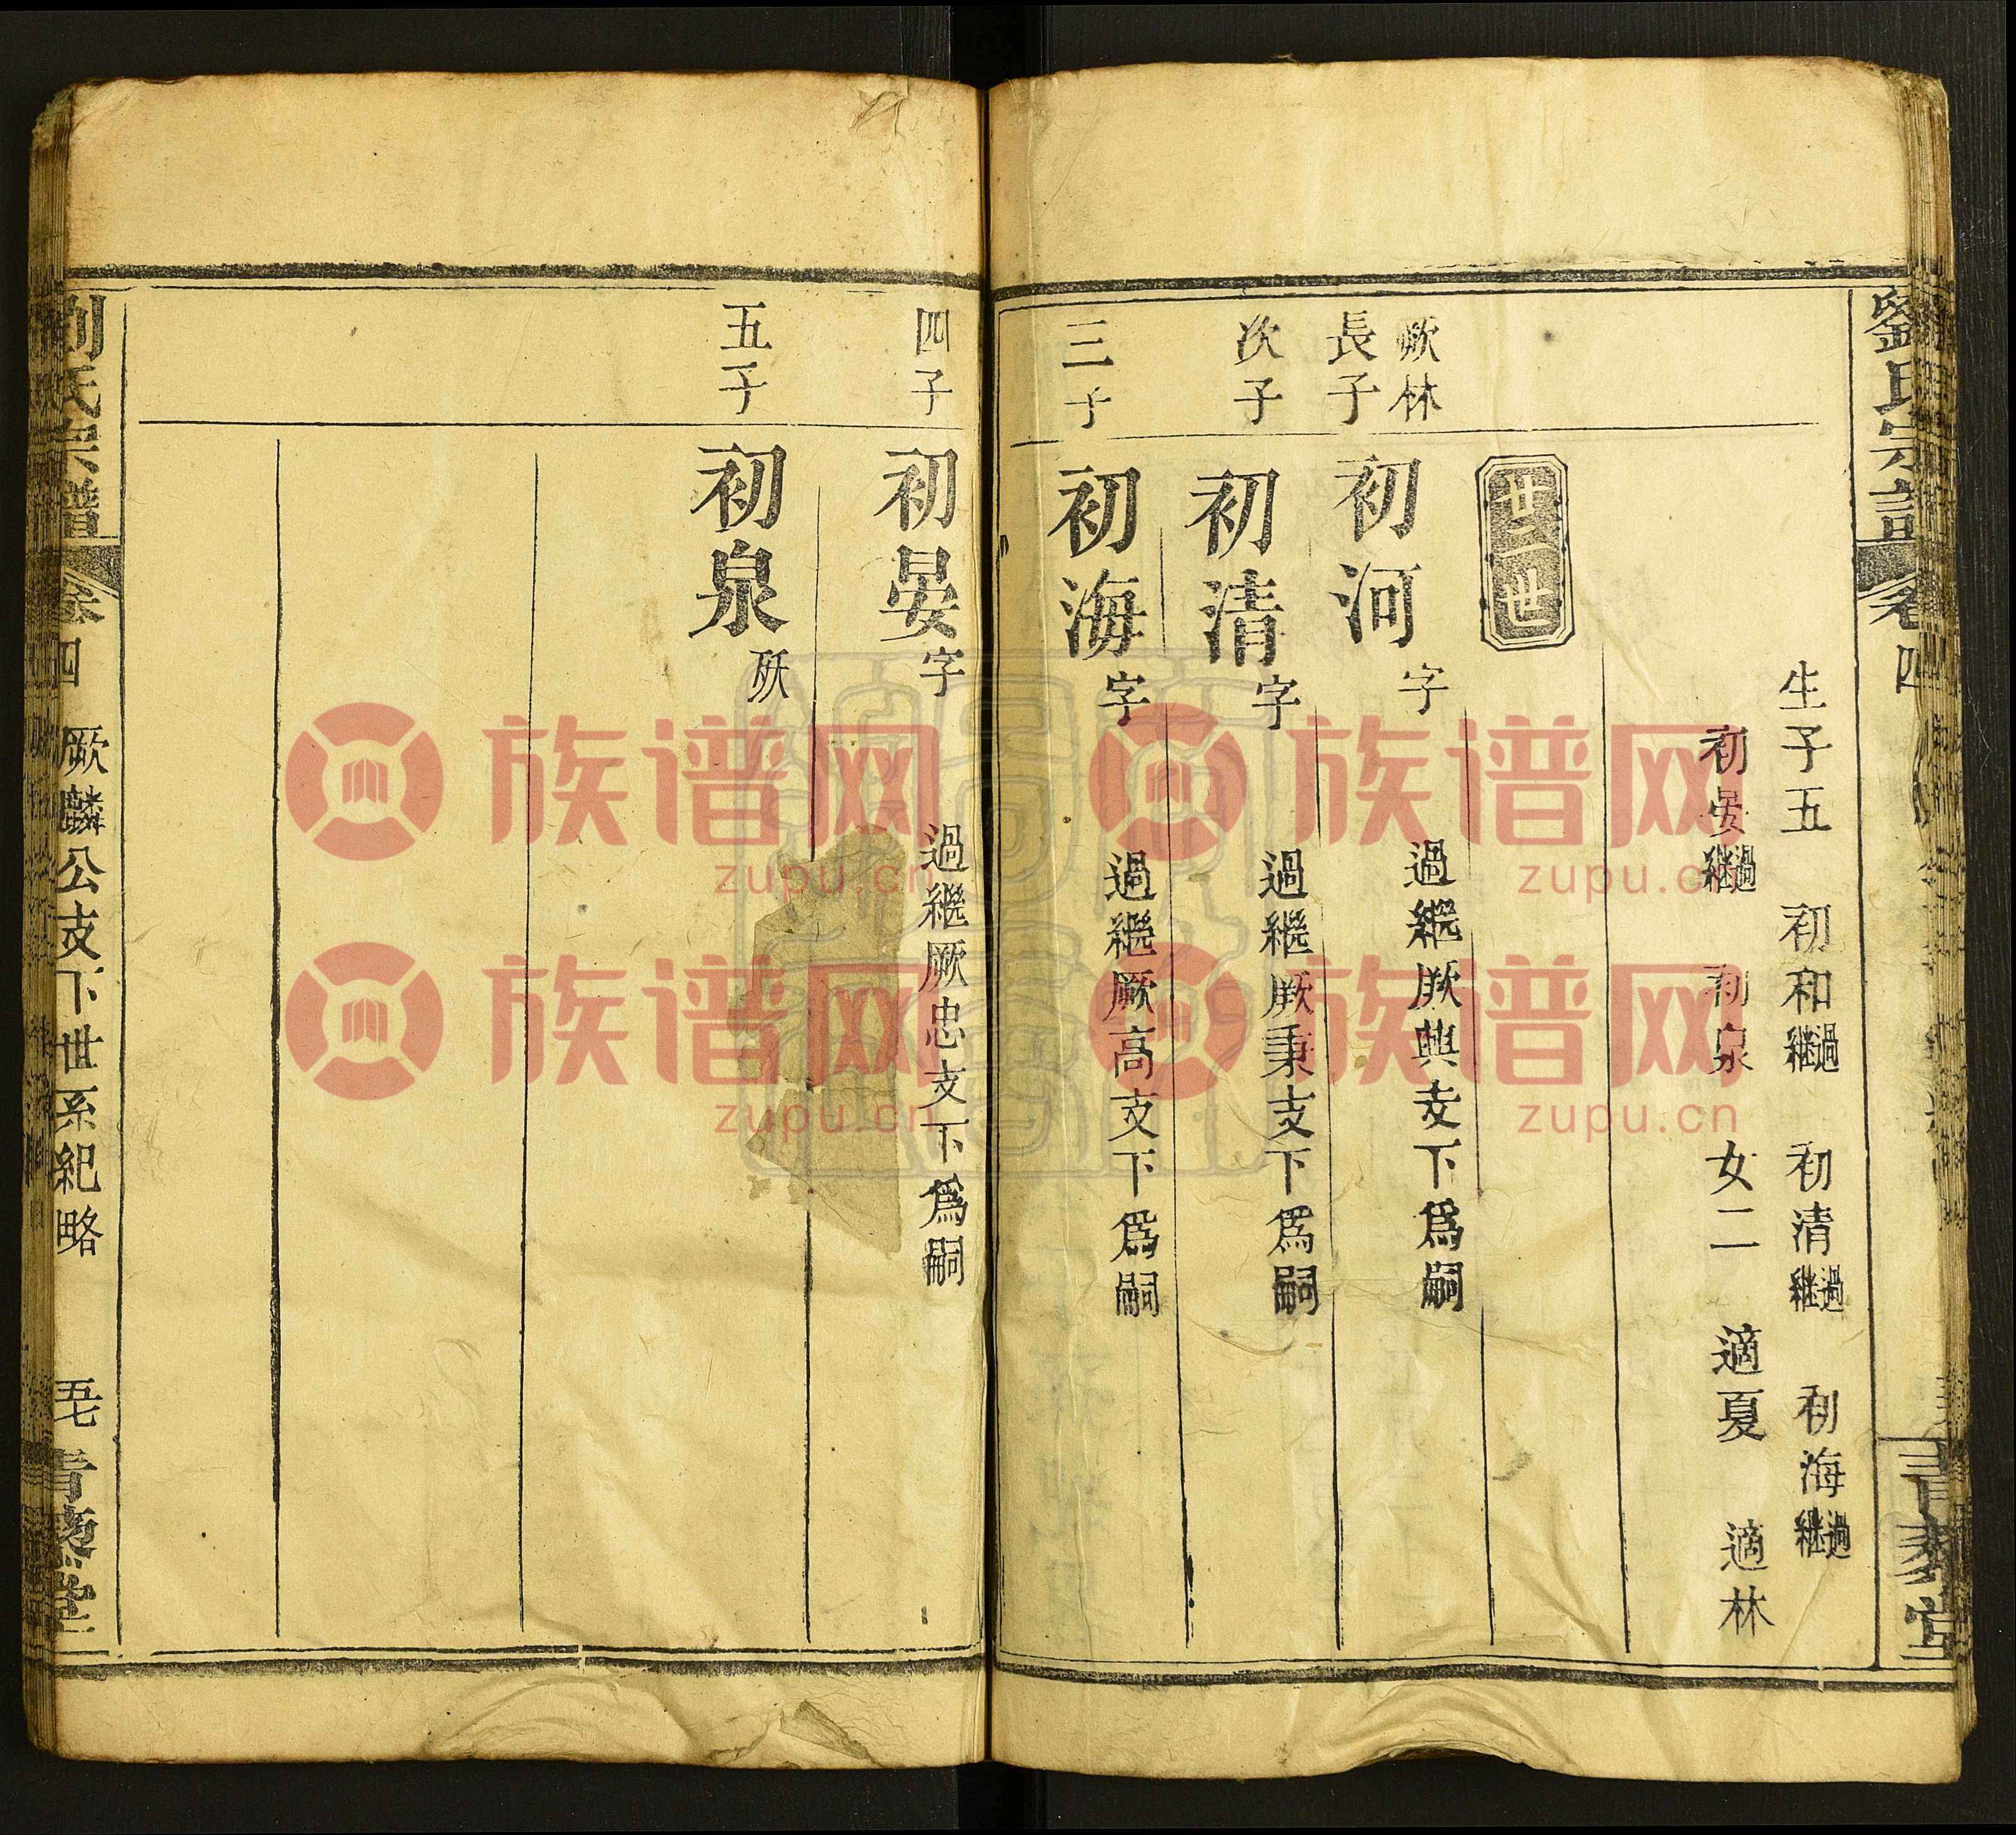 劉氏宗譜
卷四
生子五 初和過繼 初清過繼 初海過繼
初晏過繼 初泉 女二 適夏 適林
廿一世
厥林
長子 初河 字 過繼厥興支下爲嗣
次子 初清 字 過繼厥秉支下爲嗣
三子 初海 字 過繼厥高支下爲嗣
四子 初晏 字 過繼厥忠支下爲嗣
五子 初泉 殀
劉氏宗譜 卷四 厥麟公支下世系紀略
族谱网
zupu.cn
族谱网
zupu.cn
族谱网
zupu.cn
族谱网
zupu.cn